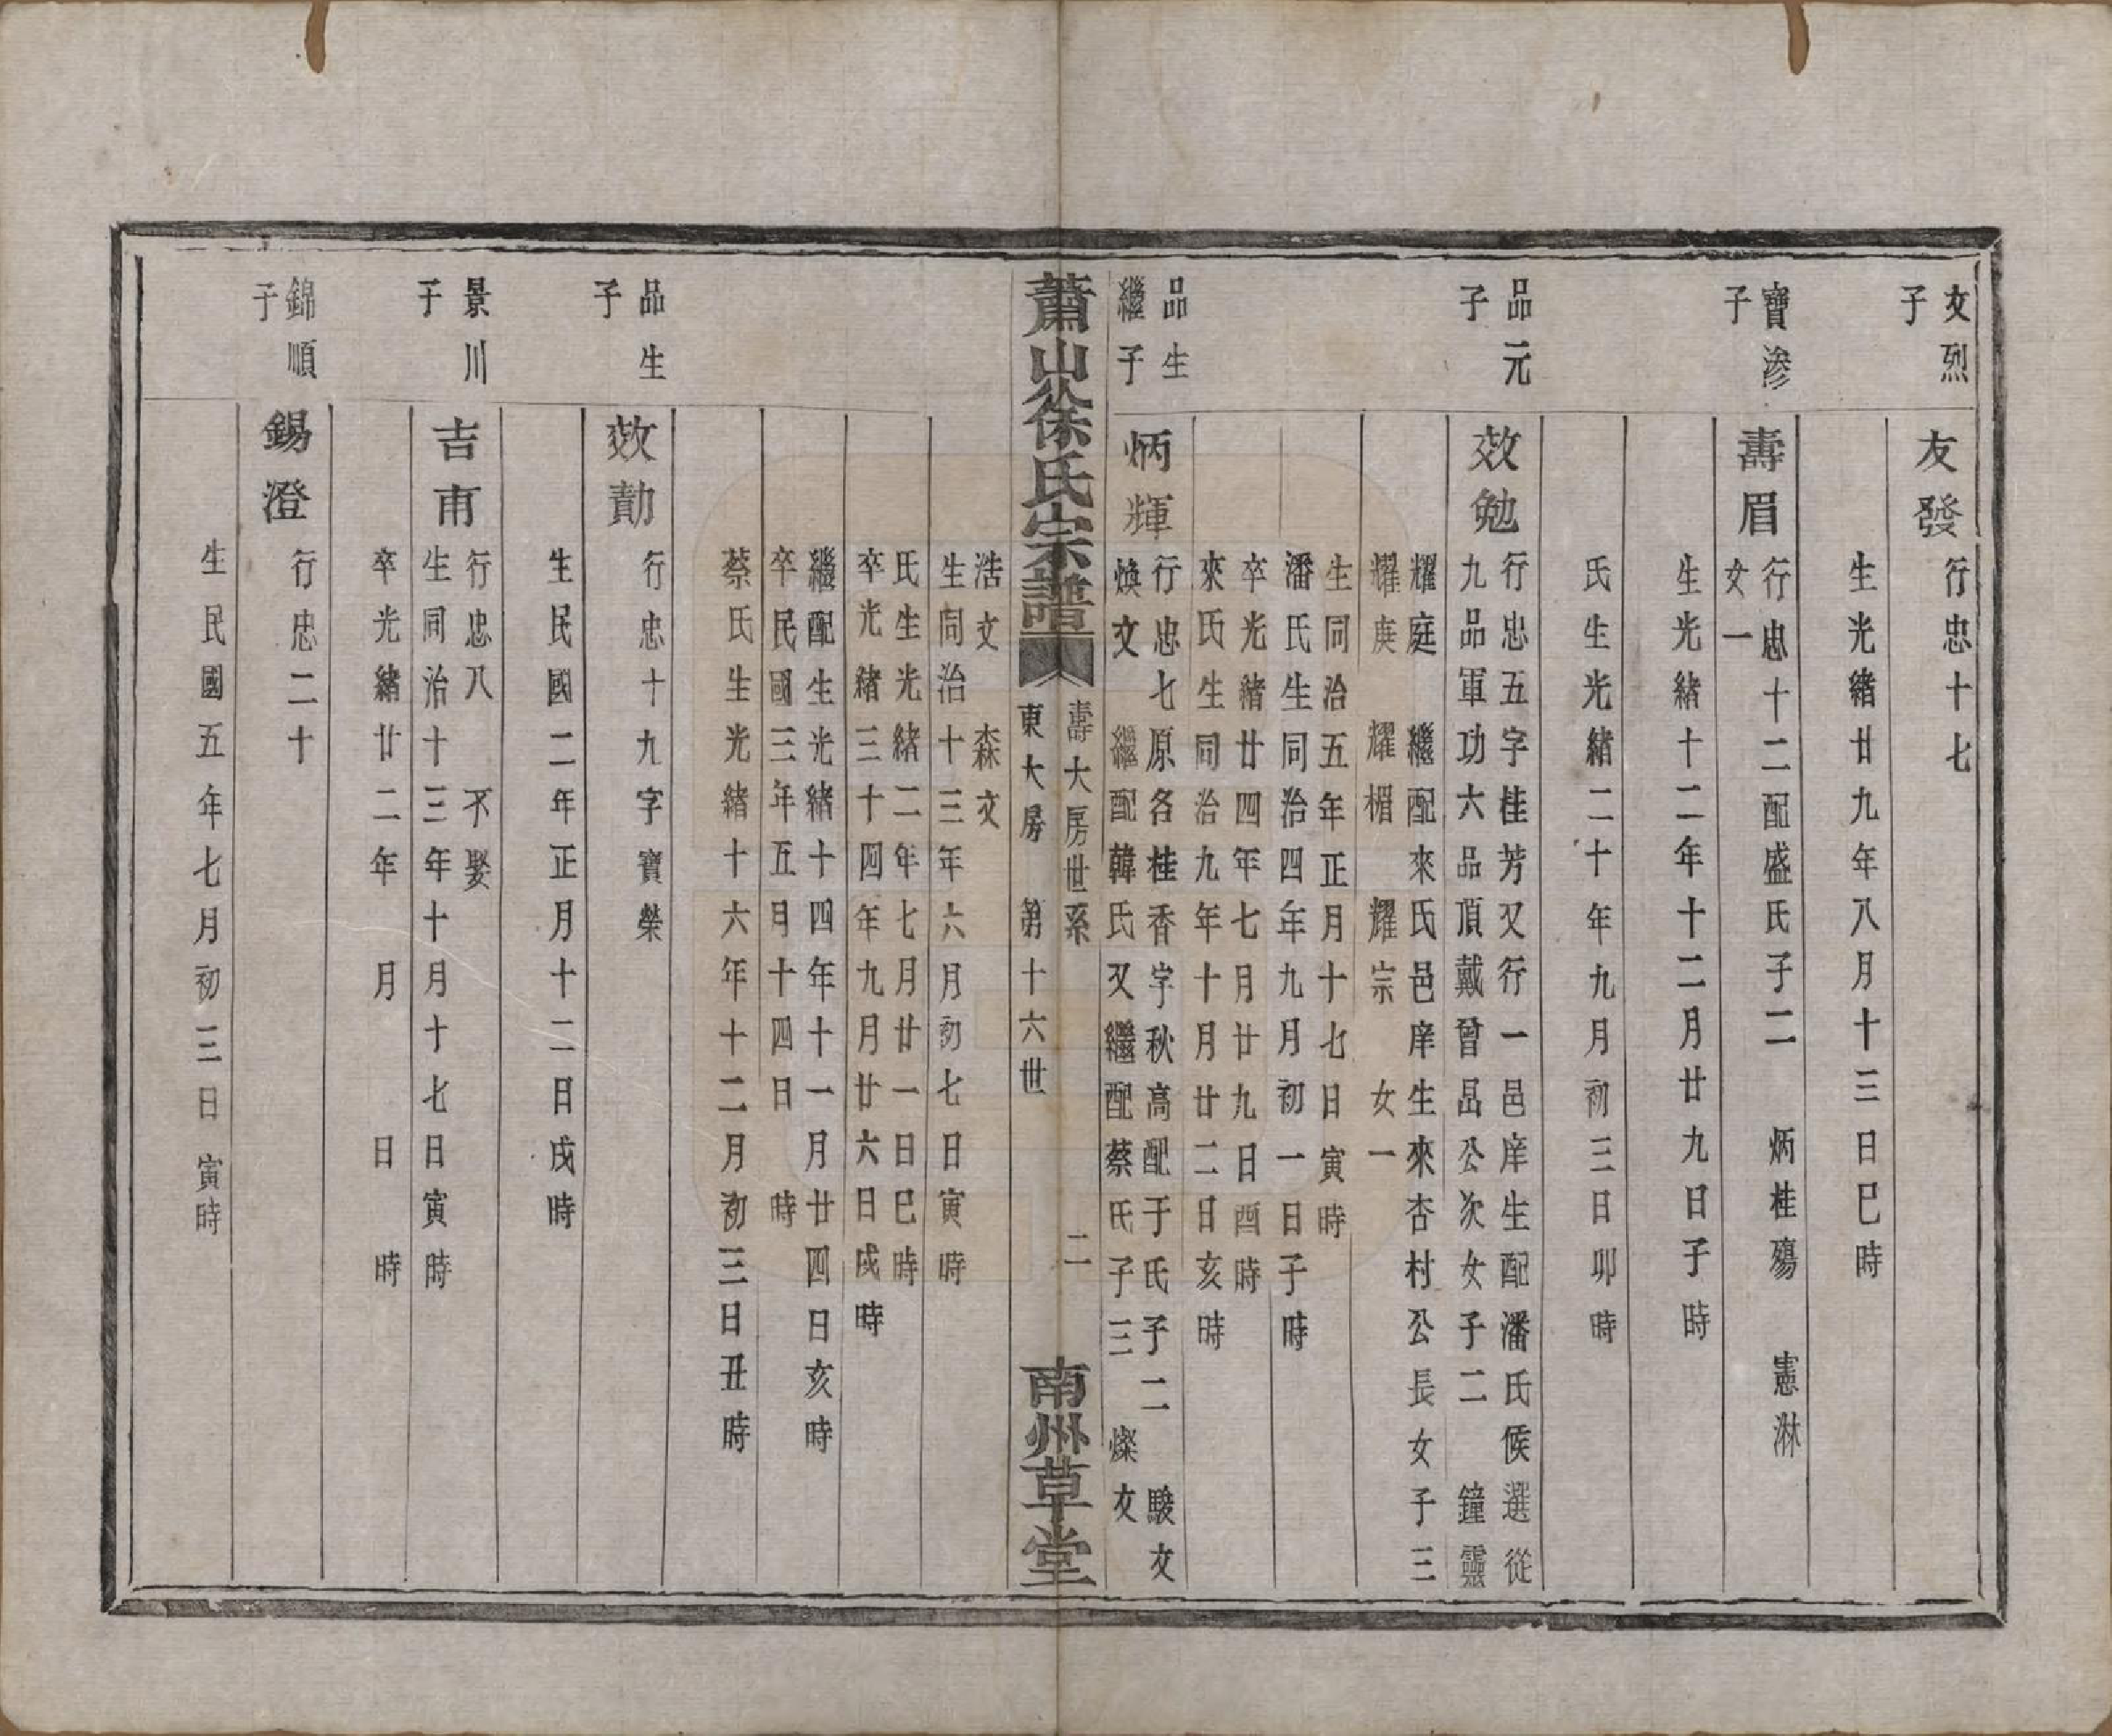 文烈
子
友發
行忠十七
生光緒廿九年八月十三日巳時
寶滲
子
壽眉
行忠十二配盛氏子二 炳桂殤 憲淋
女一
生光緒十二年十二月廿九日子時
氏生光緒二十年九月初三日卯時
品元
子
效勉
行忠五字桂芳又行一邑庠生配潘氏候選從
九品軍功六品頂戴曾昌公次女子二 鐘靈
耀庭 繼配來氏邑庠生來杏村公長女子三
耀庚 耀楣 耀宗 女一
生同治五年正月十七日寅時
潘氏生同治四年九月初一日子時
卒光緒廿四年七月廿九日酉時
來氏生同治九年十月廿二日亥時
品生
繼子
炳輝
行忠七原名桂香字秋高配于氏子二 駿文
煥文 繼配韓氏又繼配蔡氏子三 燦文
蕭山徐氏宗譜
壽大房世系
東大房 第十六世
二
南州草堂
浩文 森文
生同治十三年六月初七日寅時
氏生光緒二年七月廿一日巳時
卒光緒三十四年九月廿六日戌時
繼配生光緒十四年十一月廿四日亥時
卒民國三年五月十四日 時
蔡氏生光緒十六年十二月初三日丑時
品生
子
效勣
行忠十九字寶榮
生民國二年正月十二日戌時
景川
子
吉甫
行忠八 不娶
生同治十三年十月十七日寅時
卒光緒廿二年 月 日 時
錦順
子
錫澄
行忠二十
生民國五年七月初三日寅時